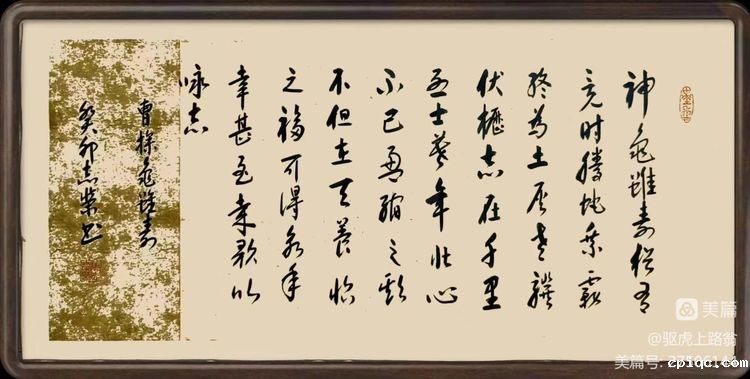 神龟雖寿猶有
竟时腾蛇乘霧
终為土灰老骥
伏櫪志在千里
烈士暮年壮心
不已盈缩之期
不但在天养怡
之福可得永年
幸甚至哉歌以
咏志
曹操龟雖寿
癸卯志荣书
美篇
@驱虎上路翁
美篇号:
cpiqc.com